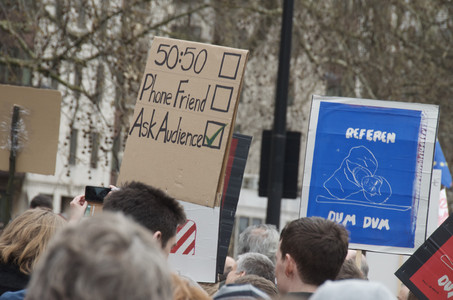 50:50
Phone Friend
Ask Audience
REFEREN
DUM DUM